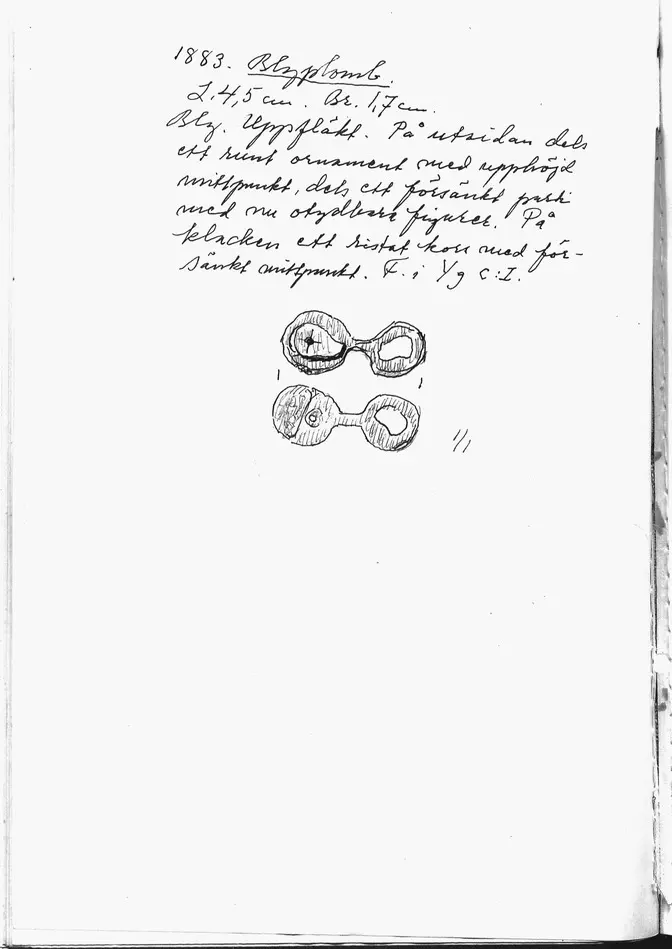 1883. Blyplomb.
L. 4,5 cm. Br. 1,7 cm.
Bly. Uppfläkt. På utsidan dels
ett runt ornament med upphöjd
mittpunkt, dels ett försänkt parti
med nu otydbara figurer. På
klacken ett ristat kors med för-
sänkt mittpunkt. F. i Yg C:I.
1/1